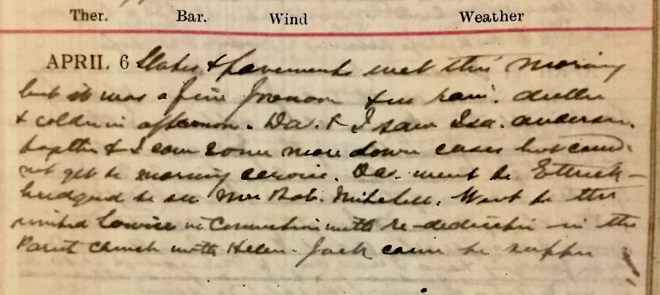 Ther. Bar. Wind Weather
APRIL 6 Slates & pavements wet this morning
but it was a fine forenoon & no rain. duller
& colder in afternoon. Da. & I saw Isa. Anderson,
& I saw some more down cases but could
not get to morning service. Da. went to Ettrick-
bridgend to see Mrs Rob. Mitchell. Went to the
united service in connection with re-dedication in the
Parish Church with Helen. Jack came to supper